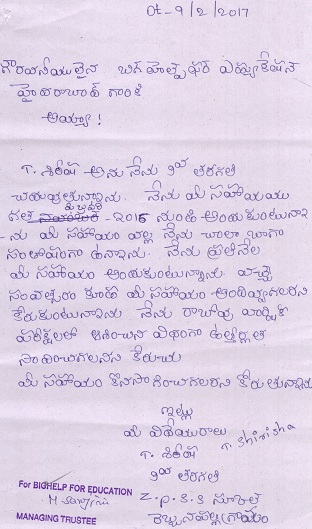 Dt-9/2/2017
గౌరవనీయులైన బిగ్ హెల్ప్ ఫర్ ఎడ్యుకేషన్
హైదరాబాద్ గారికి
అయ్యా!
T. శిరీష అను నేను 9వ తరగతి
చదువుతున్నాను. నేను మీ సహాయము
గత -2015 నుండి అందుకుంటున్నా
-ను మీ సహాయం వల్ల నేను చాలా బాగా
సంతోషంగా ఉన్నాను. నేను ప్రతినెల
మీ సహాయం అందుకుంటున్నాను. వచ్చే
సంవత్సరం కూడా మీ సహాయం అందివ్వగలరని
కోరుకుంటున్నాను నేను రాబోవు వార్షిక
పరీక్షలలో ఆశించిన విధంగా ఉత్తీర్ణత
సాధించగలనని కోరుచు
మీ సహాయం కొనసాగించగలరని కోరుతున్నాను
ఇట్లు
మీ విధేయురాలు
T. శిరీష T. Shirisha
9వ తరగతి
Z.P.S.S
For BIGHELP FOR EDUCATION
MANAGING TRUSTEE